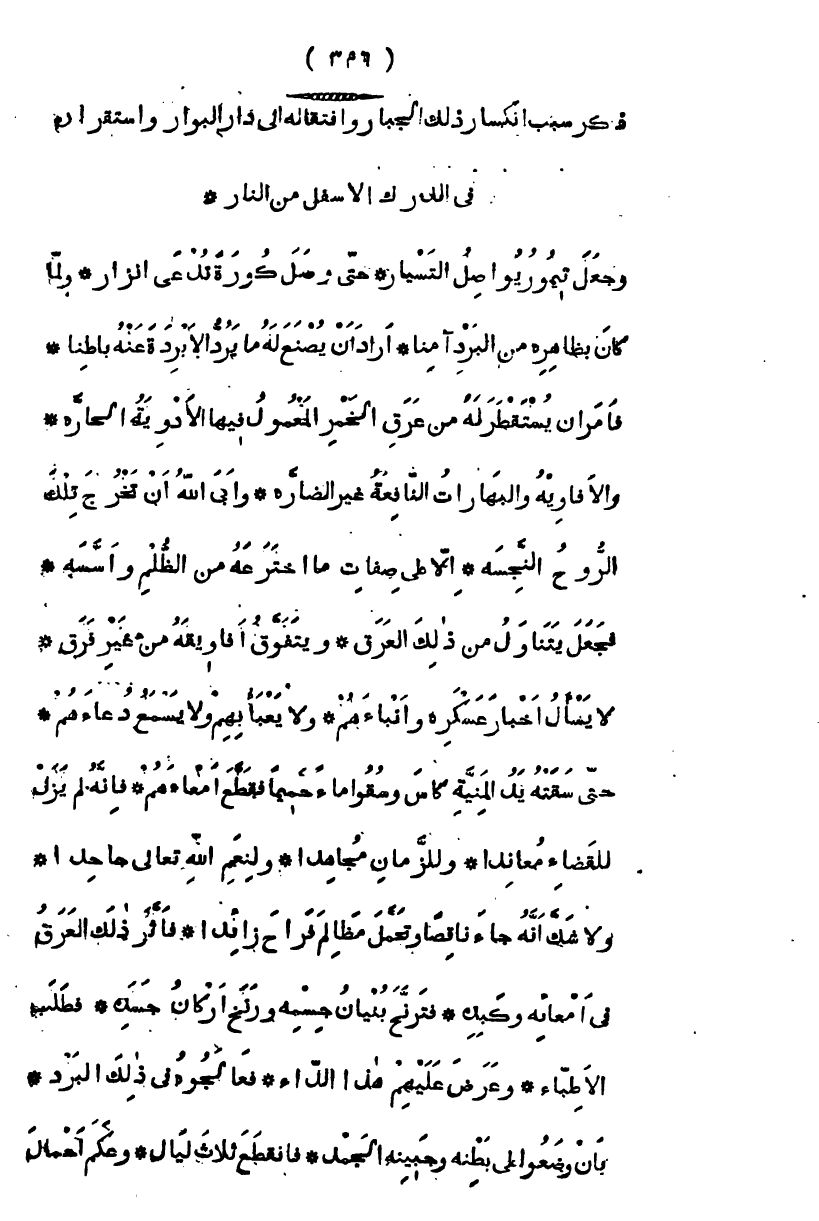 ( ٣٨٦ )
ذكر سبب انكسار ذلك الجبار وانتقاله الى دار البوار واستقراره
فى الدرك الاسفل من النار *
وجَعَلَ تيمُورُ يُواصِلُ التَسْيار * حتّى وصَلَ كُورَةً تُدْعَى اترار * ولَمّا
كانَ بظاهِرِه من البَرْد آمِنا * اَرادَ اَنْ يُصْنَعَ لَهُ ما يَرُدُّ الاَبْرِدَةَ عَنْهُ باطِنا *
فاَمَرَ ان يُسْتَقْطَرَ لَهُ من عَرَقِ الخَمْرِ المَعْمُولُ فيها الاَدْوِيَةُ الحارَّه *
والاَفاوِيْهُ والبَهاراتُ النّافِعَةُ غير الضارَّه * واَبَى اللّهُ اَنْ تَخْرُجَ تِلْكَ
الرُّوحُ النَّجِسَه * اِلّا على صِفاتِ ما اخْتَرَعَهُ من الظُّلْمِ واَسَّسَه *
فجَعَلَ يَتَناوَلُ من ذٰلِكَ العَرَق * ويتَفَوَّقُ اَفاوِيقَهُ من غَيْرِ فَرَق *
لا يَسْأَلُ اَخْبارَ عَسْكَرِه واَنْباءَهُمْ * ولا يَعْبَأُ بِهِمْ ولا يَسْمَعُ دُعاءَهُمْ *
حتّى سَقَتْهُ يَدُ المَنِيَّةِ كاسَ وسُقُوا ماءً حَمِيمًا فقَطَّعَ اَمْعاءَهُمْ * فاِنَّهُ لم يَزَلْ
للقَضاءِ مُعانِدا * وللزَّمانِ مُجاهِدا * ولِنِعَمِ اللّهِ تعالى جاحِدا *
ولا شَكَّ اَنَّهُ جاءَ ناقِصًا وتَحَمَّلَ مَظالِمَ فَراحَ زائِدا * فاَثَّرَ ذٰلك العَرَقُ
فى اَمْعائِه وكَبِدِه * فتَرَنَّحَ بُنْيانُ جِسْمِه ورَنَّخَ اَرْكانُ جَسَدِه * فطَلَبَ
الاَطِبّاء * وعَرَضَ عَلَيْهِمْ هٰذا الدّاء * فعالَجُوهُ فى ذٰلِكَ البَرْد *
بِاَنْ وضَعُوا على بَطْنِه وجَبِينِه الجَمْد * فانقطَعَ ثَلاثَ لَيال * وعَكَمَ اَحْمالَ